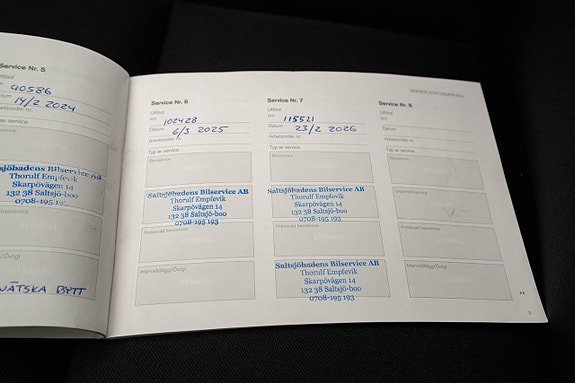 Service Nr. 5
90586
14/2 2024
Saltsjöbadens Bilservice AB
Thorulf Empfevik
Skarpövägen 14
132 38 Saltsjö-boo
0708-195 193
VÄTSKA BYTT
Service Nr. 6
Utförd
km 102428
Datum 6/3 2025
Arbetsorder nr.
Typ av service
Basservice
Saltsjöbadens Bilservice AB
Thorulf Empfevik
Skarpövägen 14
132 38 Saltsjö-boo
0708-195 193
Anpassad basservice
Intervalltillägg/Övrigt
Service Nr. 7
Utförd
km 115521
Datum 23/2 2026
Arbetsorder nr.
Typ av service
Saltsjöbadens Bilservice AB
Thorulf Empfevik
Skarpövägen 14
132 38 Saltsjö-boo
0708-195 193
Anpassad basservice
Saltsjöbadens Bilservice AB
Thorulf Empfevik
Skarpövägen 14
132 38 Saltsjö-boo
0708-195 193
SERVICE OCH UNDERHÅLL
Service Nr. 8
Utförd
km
Datum
Arbetsorder nr.
Typ av service
Intervalltillägg/Övrigt
9